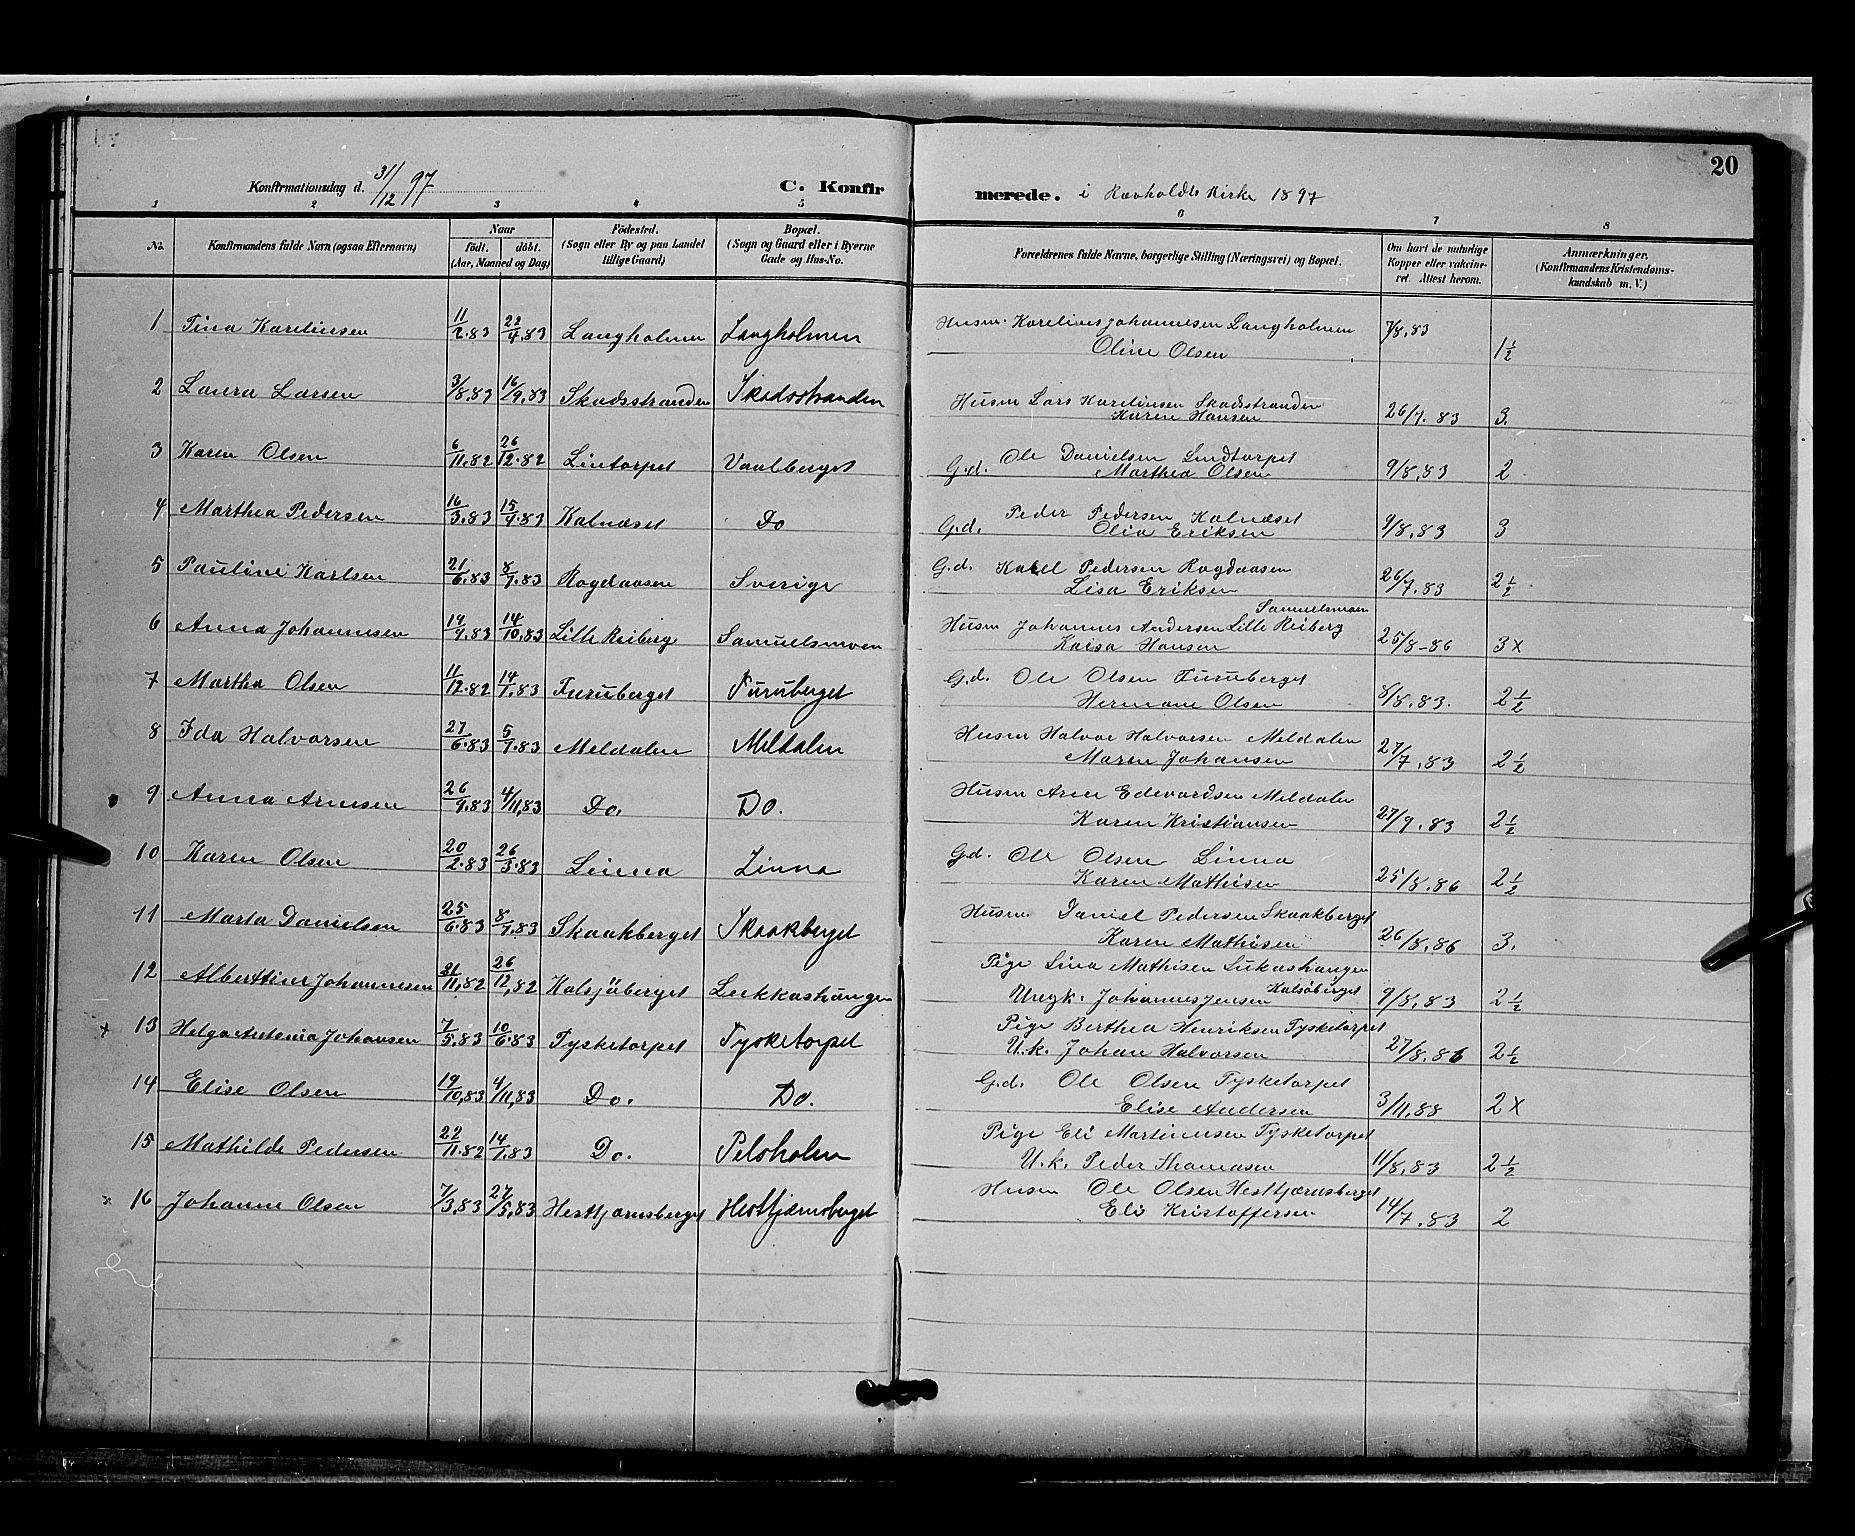 20
Konfirmationsdag d. 31/12 97 C. Konfirmerede. i Ravholdts Kirke 1897
1 2 3 4 5 6 7 8
No. Konfirmandens fulde Navn (ogsaa Efternavn) Naar födt. döbt. (Aar, Maaned og Dag) Födested. (Sogn eller By og paa Landet tillige Gaard) Bopæl. (Sogn og Gaard eller i Byerne Gade og Hus-No. Forældrenes fulde Navne, borgerlige Stilling (Næringsvei) og Bopæl. Om havt de naturlige Kopper eller vakcineret. Attest herom. Anmærkninger. (Konfirmandens Kristendomskundskab m. V.)
1 Tina Karelinsen 11/2.83 22/4.83 Langholmen Langholmen Husm. Karelines Johannesen Langholmen 7/8.83
Oline Olsen 1½
2 Laura Larsen 3/8.83 16/9.83 Skadsstranden Skadsstranden Husm Lars Karelinsen Skadsstranden
Karen Hansen 26/7.83 3.
3 Karen Olsen 6/11.82 26/12.82 Lintorpet Vaalberget G.d. Ole Danielsen Lindtorpet
Marthea Olsen 9/8.83 2
4 Marthea Pedersen 16/3.83 15/4.83 Kalnæset Do G.d. Peder Pedersen Kalnæset
Olia Eriksen 9/8.83 3
5 Pauline Karlsen 21/6.83 8/7.83 Rogdaasen Sverige G.d. Karl Pedersen Rogdaasen
Lisa Eriksen 26/7.83 2½
Samuelsmoen
6 Anna Johannesen 19/9.83 14/10.83 Lille Reiberg Samuelsmoen Husm Johannes Andersen Lille Reiberg
Kaisa Hansen 25/8-86 3x
7 Martha Olsen 11/12.82 14/1.83 Furuberget Furuberget G.d. Ole Olsen Furuberget
Hermane Olsen 8/8.83. 2½
8 Ida Halvorsen 27/6.83 5/7.83 Meldalen Meldalen Husm Halvor Halvorsen Meldalen
Maren Johansen 27/7.83 2½
9 Anna Arnesen 26/9.83 4/11.83 Do. Do. Husm Arne Edevardsen Meldalen
Karen Kristiansen 27/9.83 2½
10 Karen Olsen 20/2.83 26/3.83 Linna Linna G.d. Ole Olsen Linna
Karen Mathisen 25/8.86 2½
11 Marta Danielsen 25/6.83 8/7.83 Skaakberget Skaakberget Husm. Daniel Pedersen Skaakberget
Karen Mathisen 26/8.86 3.
12 Alberttine Johannesen 21/11.82 26/12.82 Kalsjöberget Lukkashaugen Pige Lina Mathisen Lukashaugen
Uegk. Johannes Jensen Kalsöberget 9/8.83 2½
x 13 Helga Antonia Johansen 7/5.83 10/6.83 Tysketorpet Tysketorpet Pige Berthea Henriksen Tysketorpet
U.k. Johan Halvorsen 27/8.86 2½
14 Elise Olsen 19/10.83 4/11.83 Do. Do. G.d. Ole Olsen Tysketorpet
Elise Andersen 3/11.88 2x
15 Mathilde Pedersen 22/11.82 14/1.83 Do. Pelsholen Pige Eli Martinesen Tysketorpet
U.k. Peder Thomasen 11/8.83 2½
x 16 Johanne Olsen 7/3.83 27/5.83 Hesttjærnsberget Hesttjærnsberget Husm Ole Olsen Hesttjærnsberget
Eli Kristoffersen 14/7.83 2